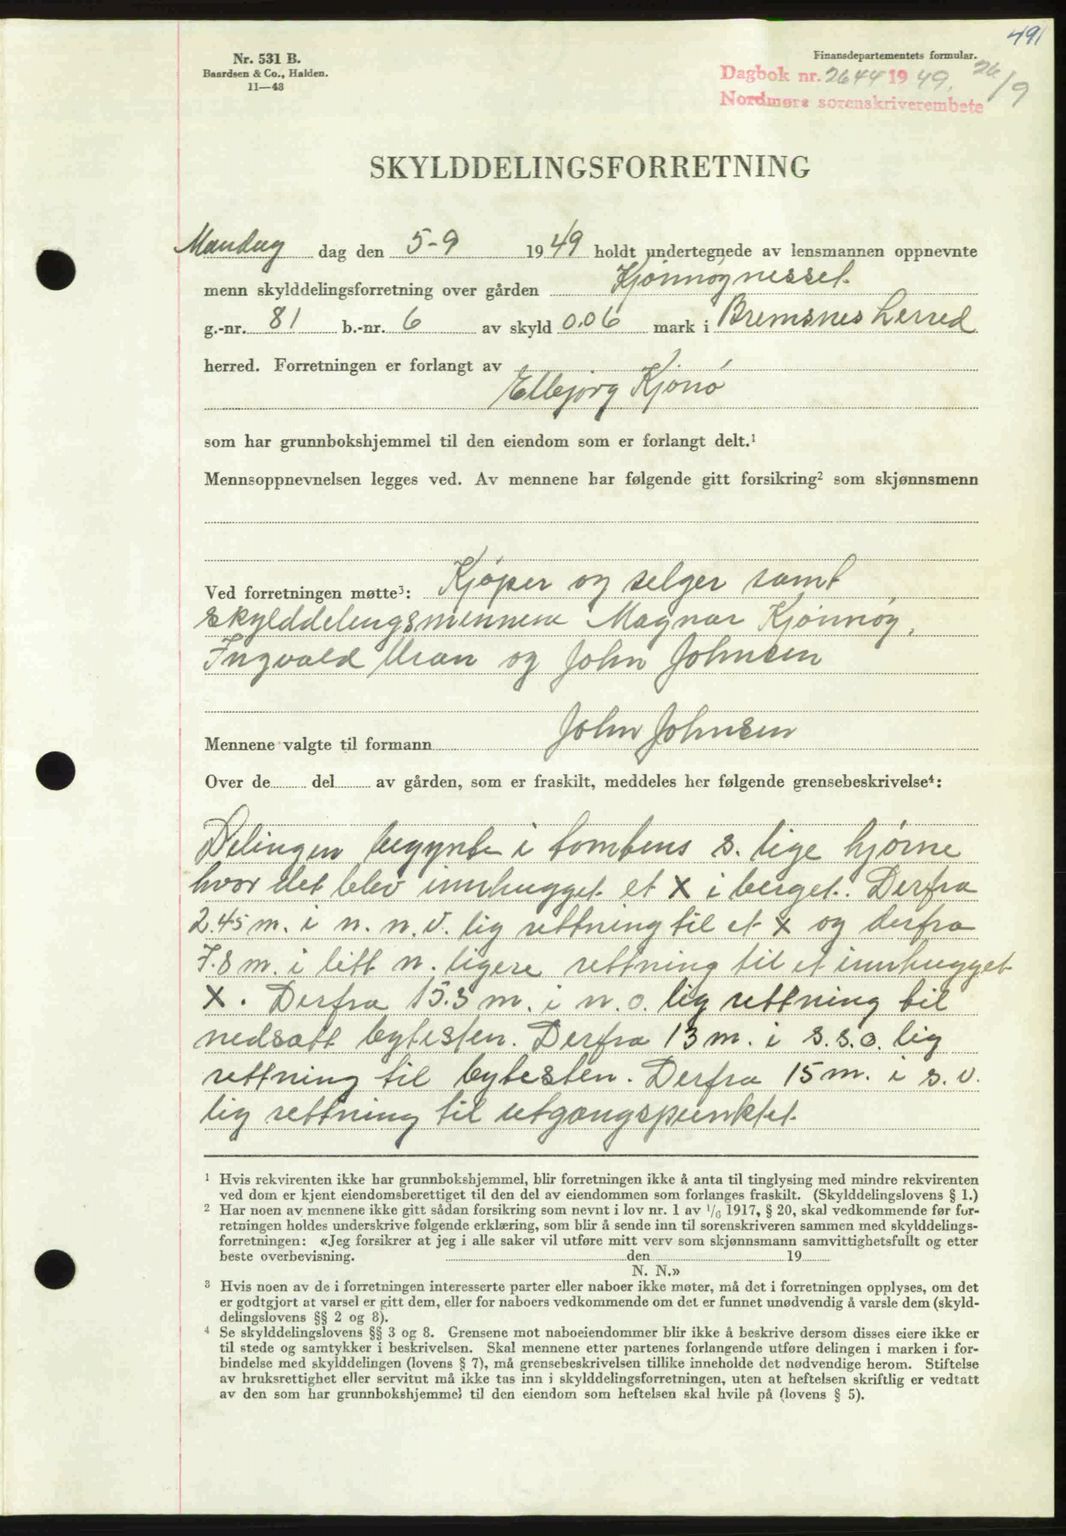 491
Nr. 531 B.
Baardsen & Co., Halden.
11—43
Finansdepartementets formular.
Dagbok nr. 2644 1949. 26/9
Nordmøre sorenskriverembete
SKYLDDELINGSFORRETNING
Mandag dag den 5-9 1949 holdt undertegnede av lensmannen oppnevnte
menn skylddelingsforretning over gården Kjønnøgnesset.
g.-nr. 81 b.-nr. 6 av skyld 0.06 mark i Bremsnes herred
herred. Forretningen er forlangt av
Elbjørg Kjønø
som har grunnbokshjemmel til den eiendom som er forlangt delt.¹
Mennsoppnevnelsen legges ved. Av mennene har følgende gitt forsikring² som skjønnsmenn
Ved forretningen møtte³: Kjøper og selger samt
skylddelingsmennene Magnar Kjønnøy,
Ingvald Uran og John Johnsen
Mennene valgte til formann John Johnsen
Over de del av gården, som er fraskilt, meddeles her følgende grensebeskrivelse⁴:
Delingen begynte i tomtens s. lige hjørne
hvor det blev innhugget et X i berget. Derfra
2.45 m. i n. n. v. lig rettning til et X og derfra
7.8 m. i litt n. ligere rettning til et innhugget
X. Derfra 15.3 m. i n. o. lig rettning til
nedsatt bytesten. Derfra 13 m. i s. s. o. lig
rettning til bytesten. Derfra 15 m. i s. v.
lig rettning til utgangspunktet.
¹ Hvis rekvirenten ikke har grunnbokshjemmel, blir forretningen ikke å anta til tinglysing med mindre rekvirenten
ved dom er kjent eiendomsberettiget til den del av eiendommen som forlanges fraskilt. (Skylddelingslovens § 1.)
² Har noen av mennene ikke gitt sådan forsikring som nevnt i lov nr. 1 av 1/6 1917, § 20, skal vedkommende før for-
retningen holdes underskrive følgende erklæring, som blir å sende inn til sorenskriveren sammen med skylddelings-
forretningen: «Jeg forsikrer at jeg i alle saker vil utføre mitt verv som skjønnsmann samvittighetsfullt og etter
beste overbevisning. den 19
N. N.»
³ Hvis noen av de i forretningen interesserte parter eller naboer ikke møter, må det i forretningen opplyses, om det
er godtgjort at varsel er gitt dem, eller for naboers vedkommende om det er funnet unødvendig å varsle dem (skyld-
delingslovens §§ 2 og 8).
⁴ Se skylddelingslovens §§ 3 og 8. Grensene mot naboeiendommer blir ikke å beskrive dersom disses eiere ikke er
til stede og samtykker i beskrivelsen. Skal mennene etter partenes forlangende utføre delingen i marken i for-
bindelse med skylddelingen (lovens § 7), må grensebeskrivelsen tillike inneholde det nødvendige herom. Stiftelse
av bruksrettighet eller servitut må ikke tas inn i skylddelingsforretningen, uten at heftelsen skriftlig er vedtatt
av den som har grunnbokshjemmel til den eiendom som heftelsen skal hvile på (lovens § 5).